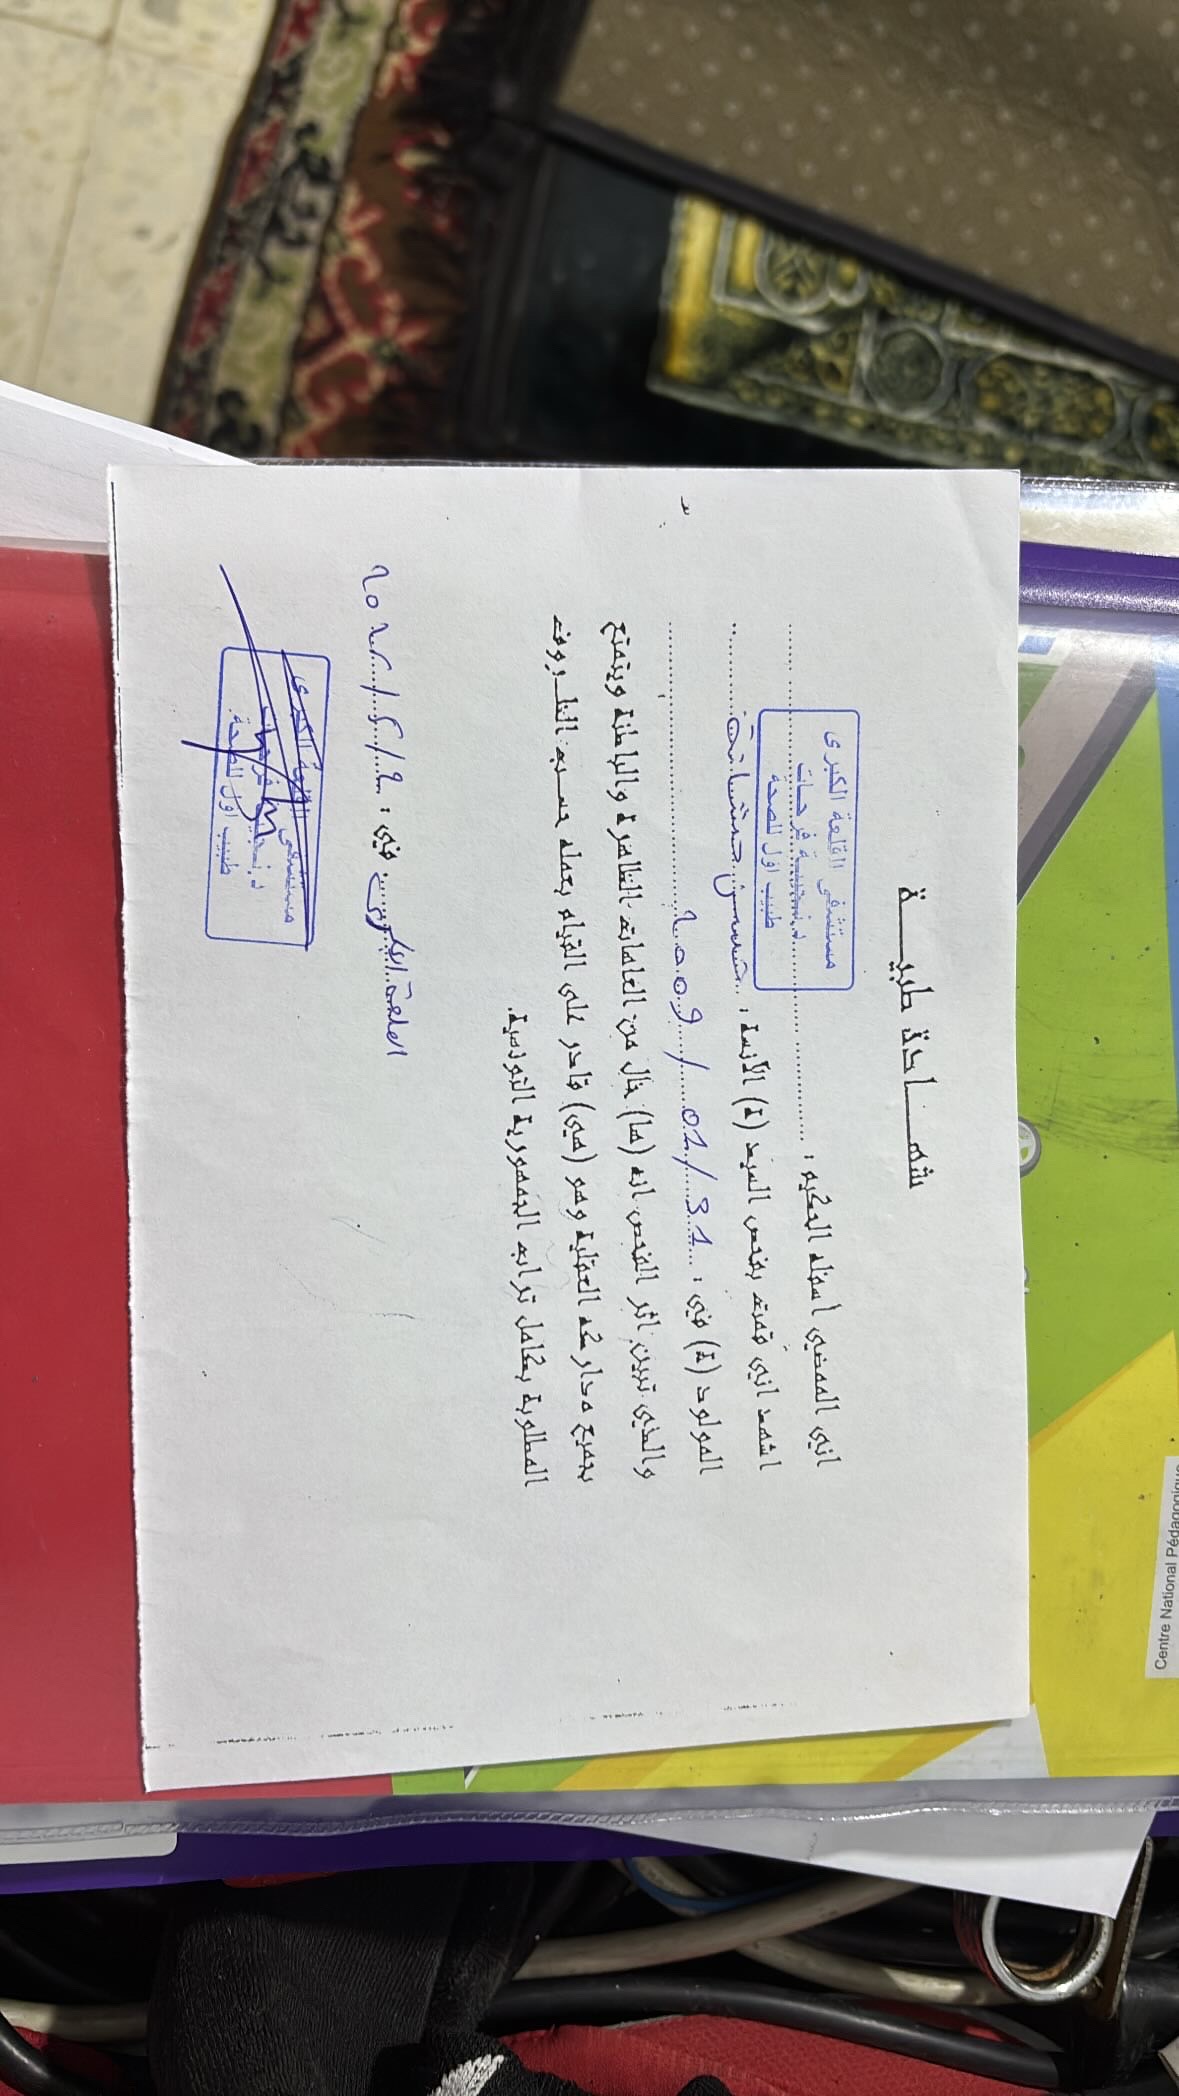 شهـــادة طبيـــة
اني الممضي اسفله الحكيم :
مستشفى القلعة الكبرى
د. نجيبة فرحات
طبيب اول للصحة
اشهد اني قمت بفحص السيد (ة) الآنسة :
المولود (ة) في : 31/01/2009
والذي تبين اثر الفحص انه (ها) خال من العاهات الظاهرة والباطنة ويتمتع
بجميع مداركه العقلية وهو (هي) قادر على القيام بعمله حسب الظروف
المطلوبة بكامل تراب الجمهورية التونسية.
القلعة الكبرى في :
مستشفى القلعة الكبرى
د. نجيبة فرحات
طبيب اول للصحة
Centre National Pédagogique